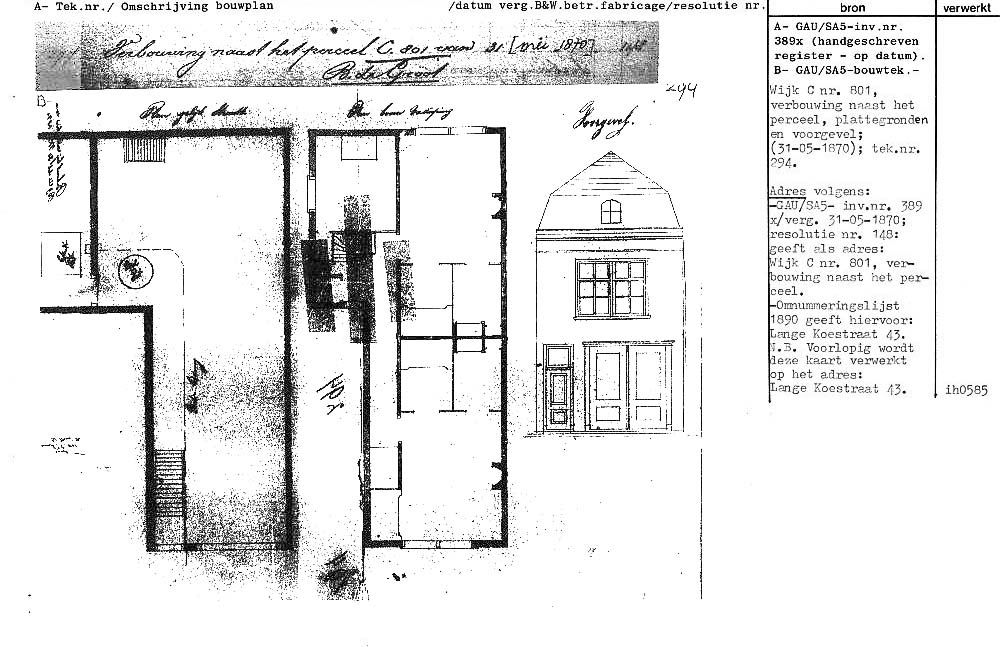 A- Tek.nr./ Omschrijving bouwplan /datum verg.B&W.betr.fabricage/resolutie nr.
bron
verwerkt
Verbouwing naast het perceel C. 801 van 31 [mei 1870]
B. de Groot
294
B-
Voorgevel.
A- GAU/SA5-inv.nr.
389x (handgeschreven
register - op datum).
B- GAU/SA5-bouwtek.-
Wijk C nr. 801,
verbouwing naast het
perceel, plattegronden
en voorgevel;
(31-05-1870); tek.nr.
294.
Adres volgens:
-GAU/SA5- inv.nr. 389
x/verg. 31-05-1870;
resolutie nr. 148:
geeft als adres:
Wijk C nr. 801, ver-
bouwing naast het per-
ceel.
-Omnummeringslijst
1890 geeft hiervoor:
Lange Koestraat 43.
N.B. Voorlopig wordt
deze kaart verwerkt
op het adres:
Lange Koestraat 43.
ih0585